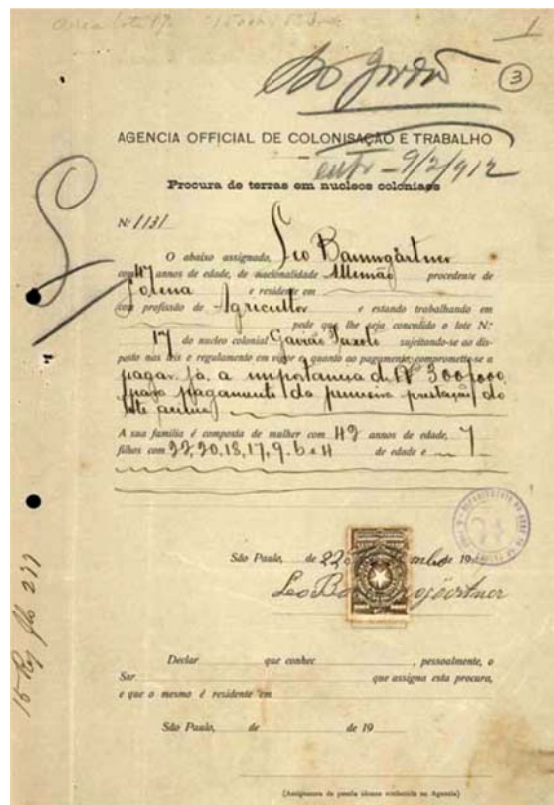 1
3
AGENCIA OFFICIAL DE COLONISAÇÃO E TRABALHO
9/2/912
Procura de terras em nucleos coloniaes
Nº 1131
O abaixo assignado, Leo Baumgärtner
com 47 annos de edade, de nacionalidade Allemão procedente de
e residente em
com profissão de Agricultor e estando trabalhando em
pede que lhe seja concedido o lote N.º
17 do nucleo colonial Gavião Peixoto sujeitando-se ao dis-
posto nas leis e regulamento em vigor e quanto ao pagamento, compromette-se a
pagar já a importancia de Rs 300$000,
para pagamento da primeira prestação do
lote acima
A sua familia é composta de mulher com 42 annos de edade, 7
filhos com 22, 20, 18, 17, 9, 6 e 4 de edade e
São Paulo, de 22 de 19
Leo Baumgärtner
Declar que conhec , pessoalmente, o
Snr. que assigna esta procura,
e que o mesmo é residente em
São Paulo, de de 19
(Assignatura de pessôa idonea conhecida na Agencia)